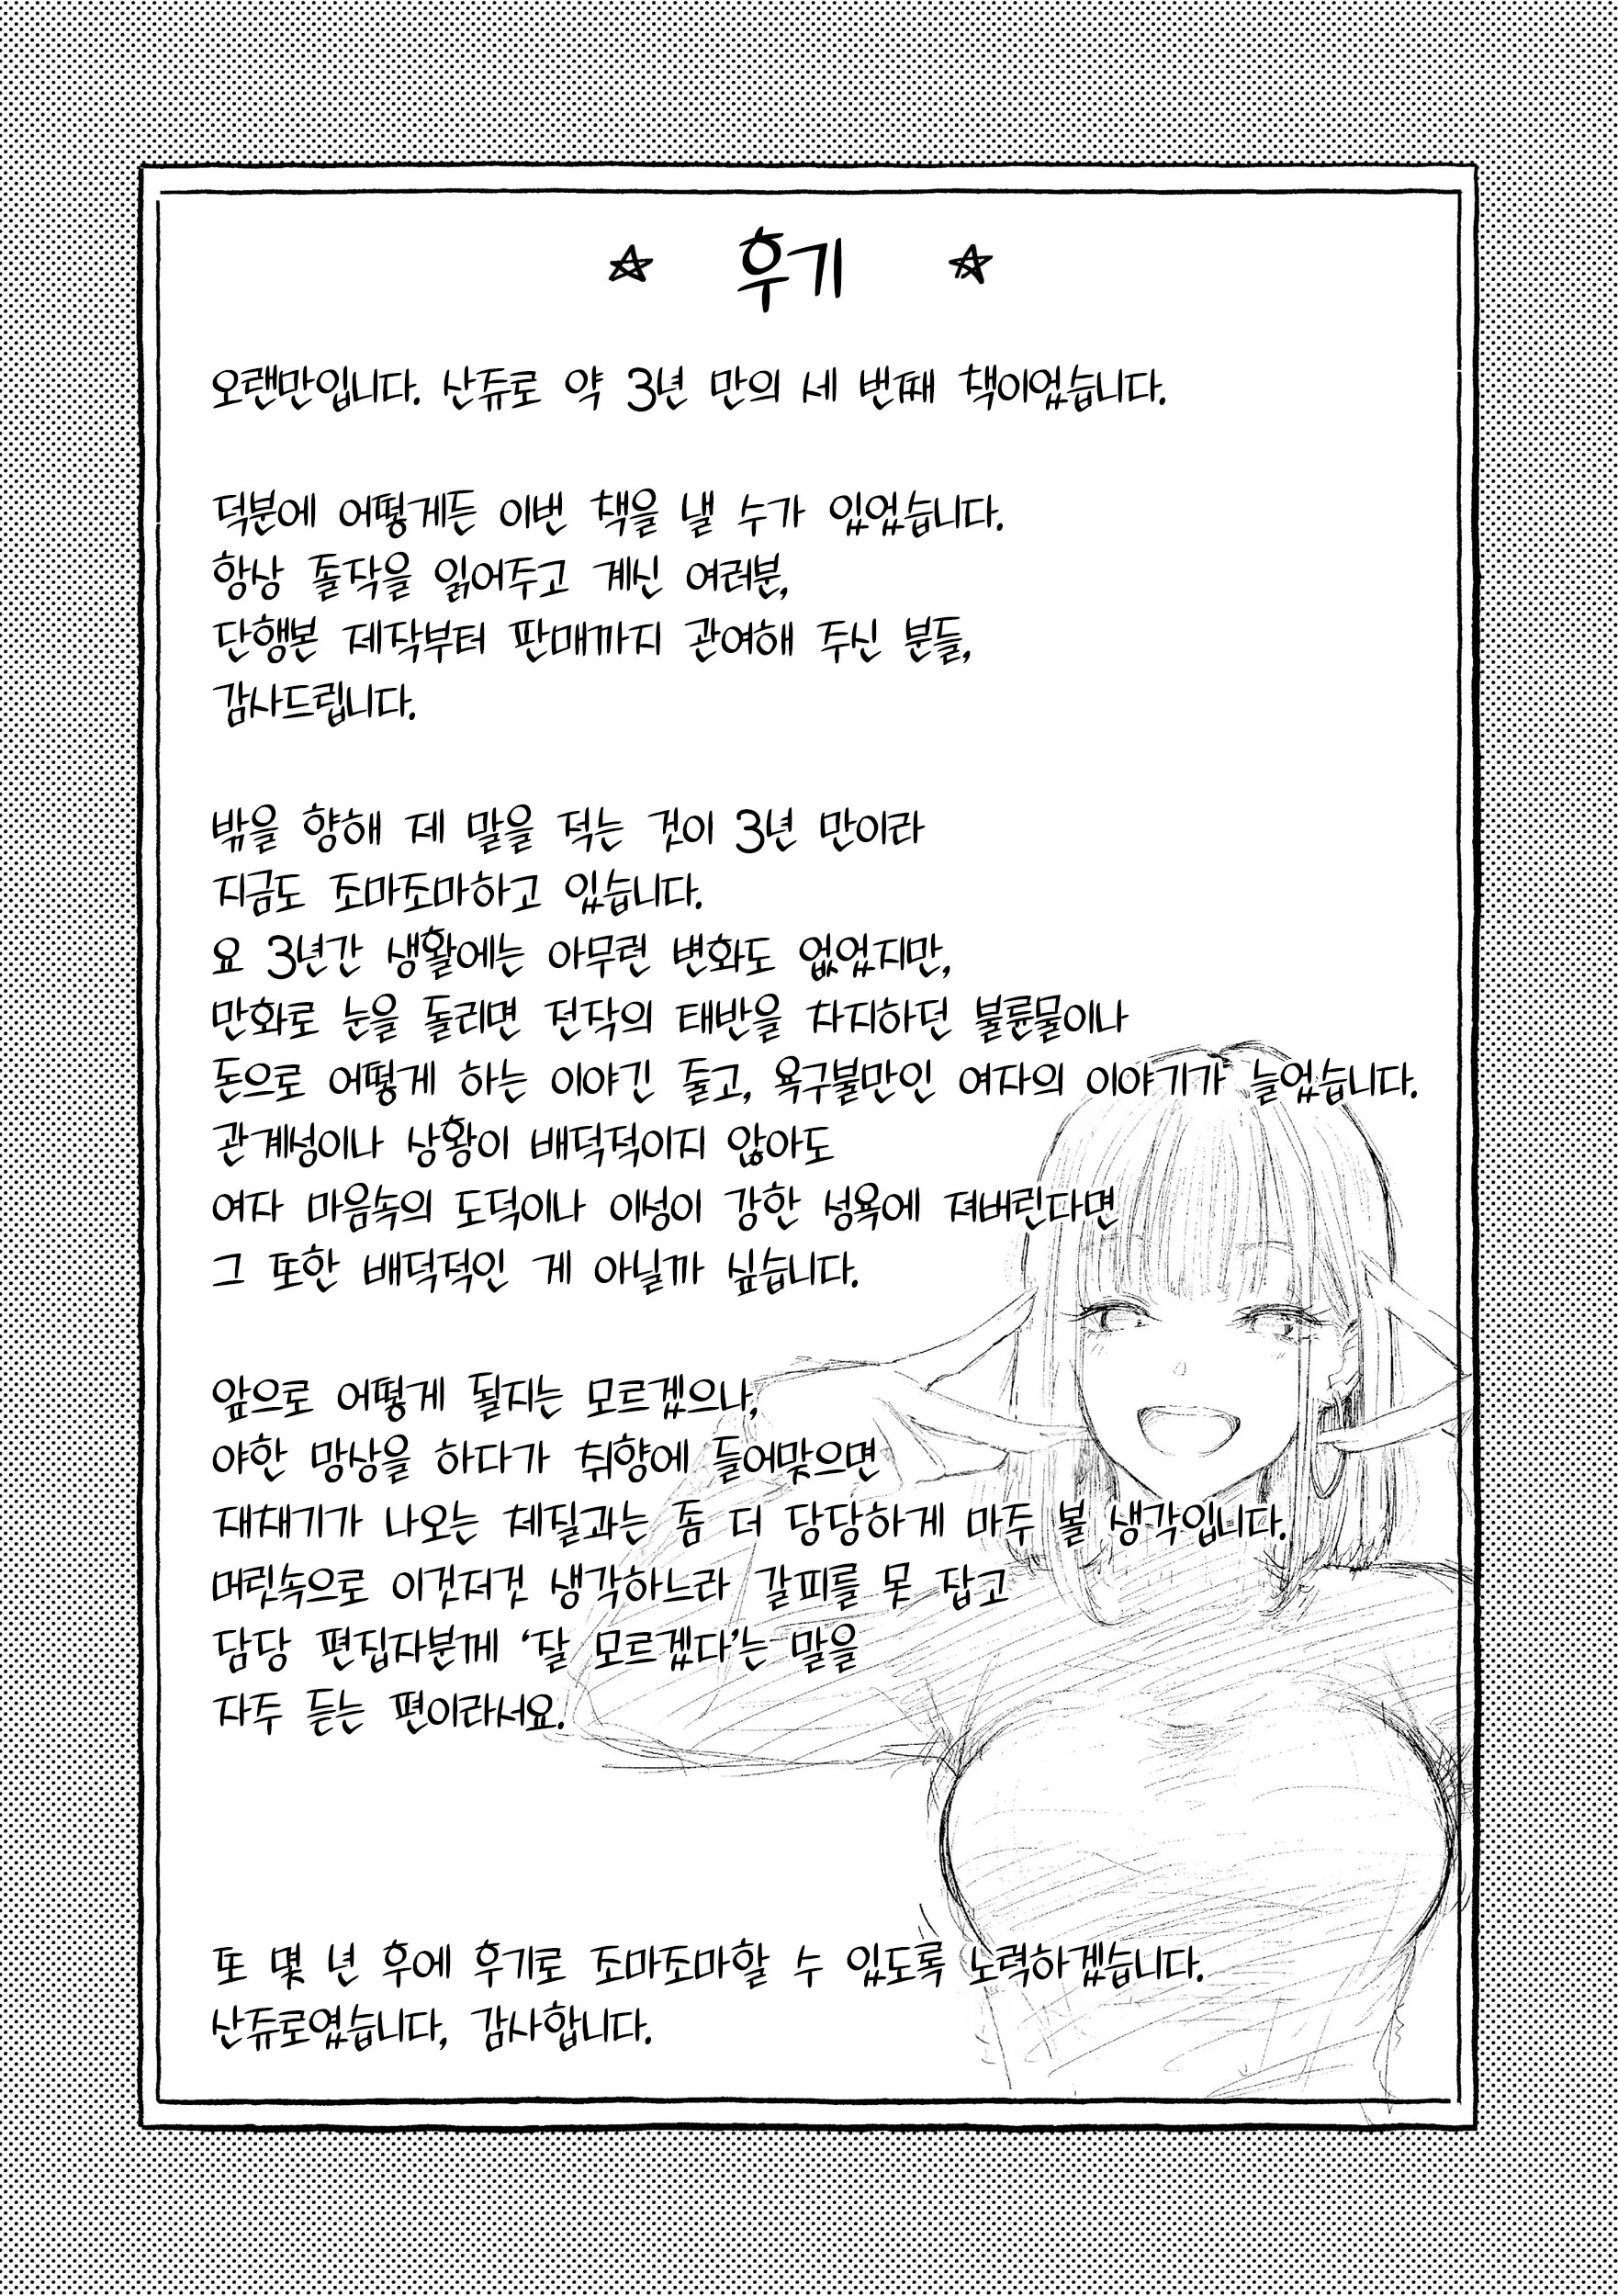 ☆ 후기 ☆
오랜만입니다. 산쥬로 약 3년 만의 세 번째 책이었습니다.
덕분에 어떻게든 이번 책을 낼 수가 있었습니다.
항상 졸작을 읽어주고 계신 여러분,
단행본 제작부터 판매까지 관여해 주신 분들,
감사드립니다.
밖을 향해 제 말을 적는 것이 3년 만이라
지금도 조마조마하고 있습니다.
요 3년간 생활에는 아무런 변화도 없었지만,
만화로 눈을 돌리면 전작의 태반을 차지하던 불륜물이나
돈으로 어떻게 하는 이야긴 줄고, 욕구불만인 여자의 이야기가 늘었습니다.
관계성이나 상황이 배덕적이지 않아도
여자 마음속의 도덕이나 이성이 강한 성욕에 져버린다면
그 또한 배덕적인 게 아닐까 싶습니다.
앞으로 어떻게 될지는 모르겠으나,
야한 망상을 하다가 취향에 들어맞으면
재채기가 나오는 체질과는 좀 더 당당하게 마주 볼 생각입니다.
머릿속으로 이것저것 생각하느라 갈피를 못 잡고
담당 편집자분께 ‘잘 모르겠다’는 말을
자주 듣는 편이라서요.
또 몇 년 후에 후기로 조마조마할 수 있도록 노력하겠습니다.
산쥬로였습니다, 감사합니다.